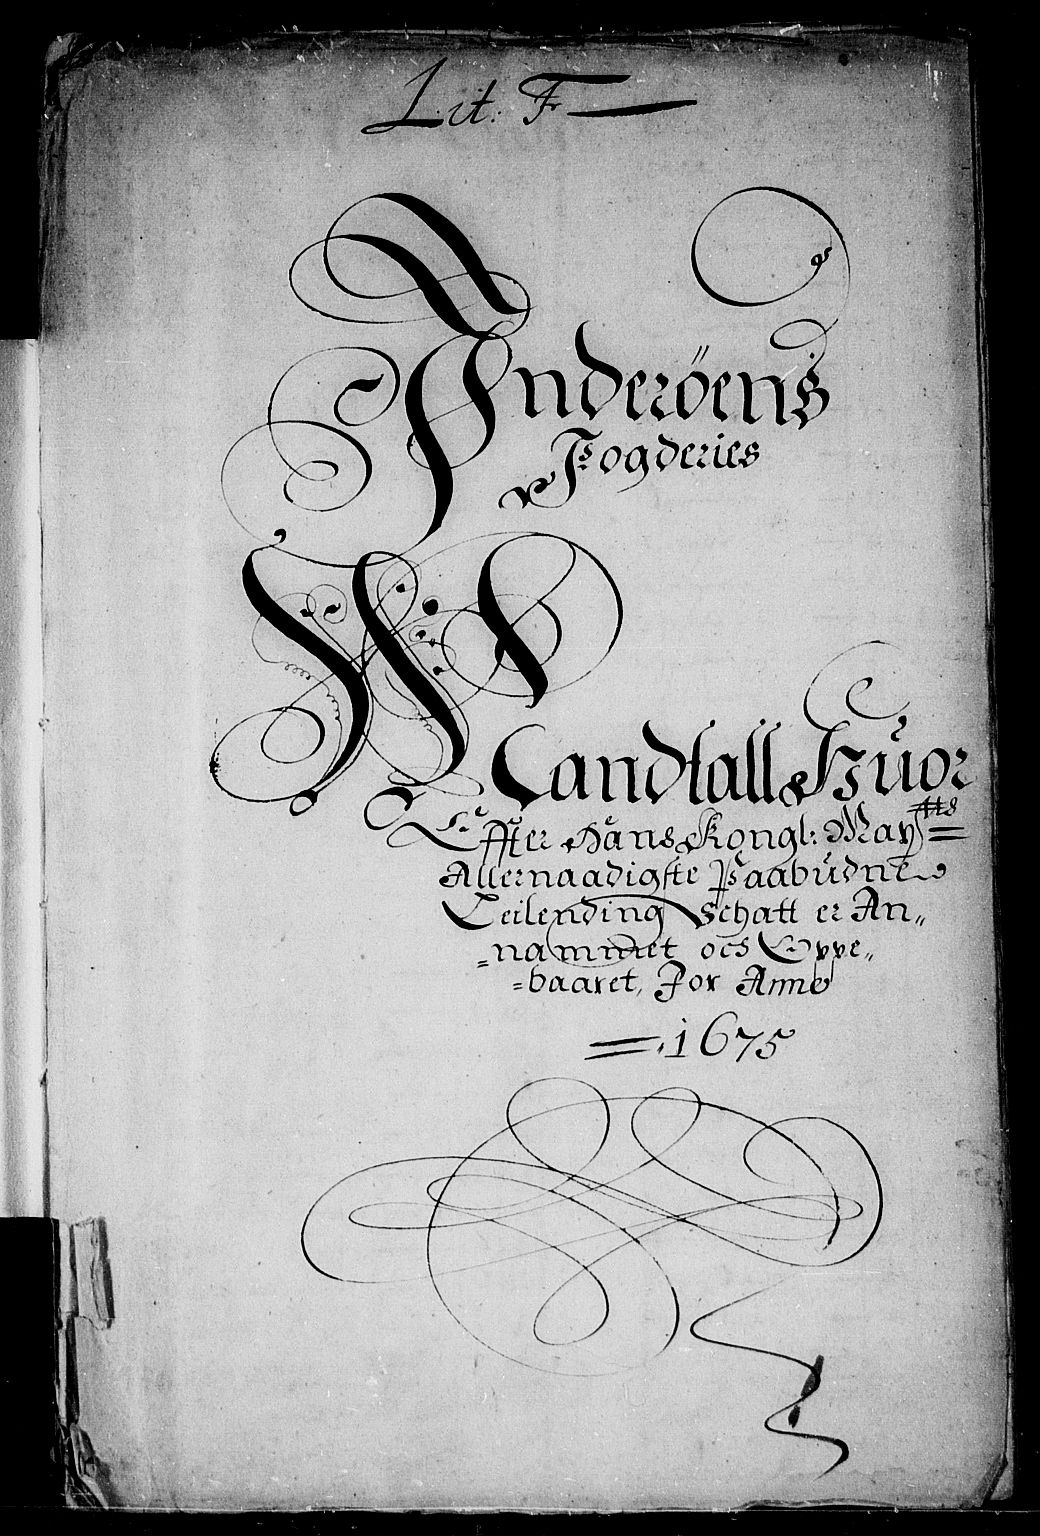 Lit. F
Inderöens
Fogderies
Mandtall Huor
Effter Hans Kongl: May:tts
Allernaadigste Paabudne
Leilending Schatt er An„
„nammet och Oppe„
„baaret, For Anno
1675